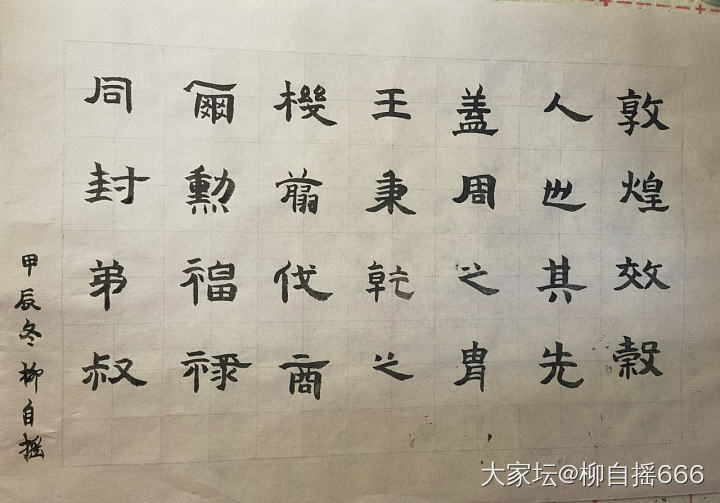 敦煌效穀
人也其先
蓋周之冑
王秉乾之
機翦伐商
爾勳福祿
同封弟叔
甲辰冬柳自摇
大家坛@柳自摇666